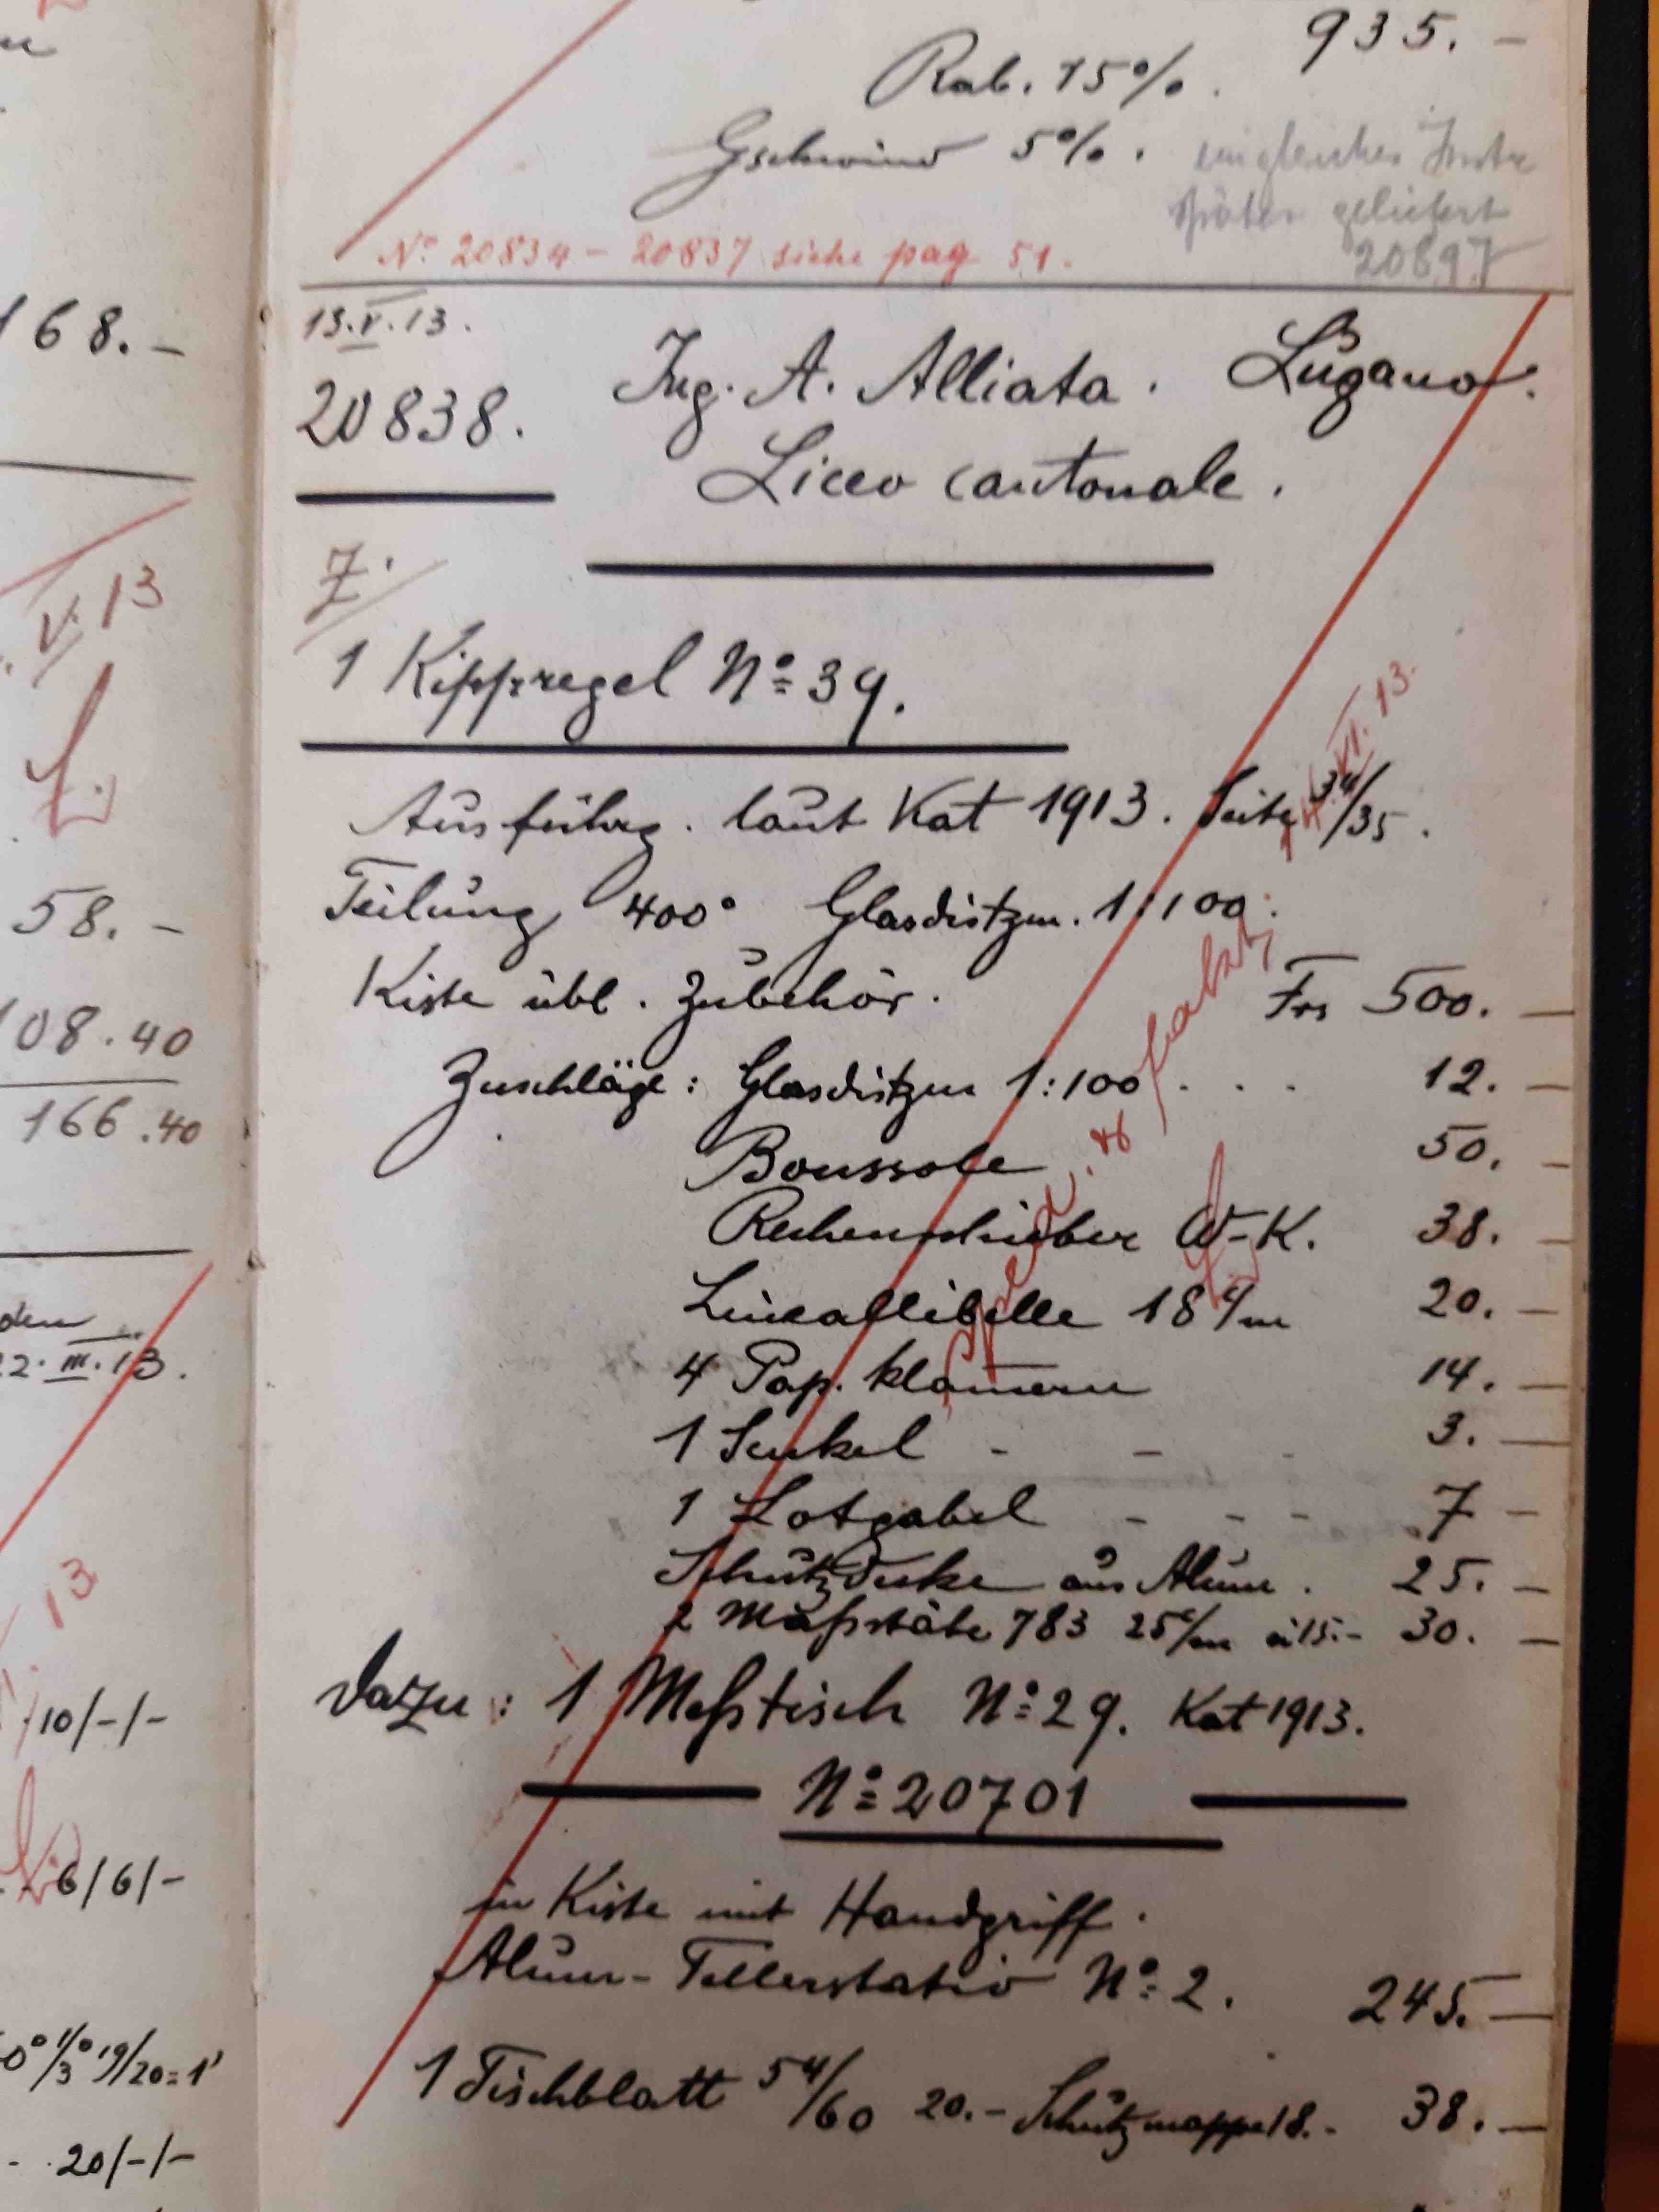 168.-
V. 13
58.-
108.40
166.40
22.III.13.
13
10/-/-
6/6/-
19/20=1'
20/-/-
935.-
Rab. 15%.
Gschwind 5%. ein gleiches Instr
später geliefert
20897
No 20834 - 20837 siehe pag 51.
13.V.13.
20838. Ing. A. Alliata. Lugano.
Liceo cantonale.
Z.
1 Kippregel No 39.
Ausführg. laut Kat 1913. Seite 34/35.
VI. 13.
Teilung 400° Glasdistzm. 1:100.
Kiste übl. Zubehör. Frs 500.-
Zuschläge: Glasdistzm 1:100 . . . 12.-
Boussole 50.-
Rechenschieber W-K. 38.-
Lineallibelle 18 c/m 20.-
4 Pap. klammern 14.-
1 Senkel - - - 3.-
1 Lotgabel - - - 7-
Schutzdecke aus Alum. 25.-
2 Maßstäbe 783 25 c/m à 15.- 30.-
Dazu: 1 Meßtisch No 29. Kat 1913.
No 20701
in Kiste mit Handgriff.
Alum-Tellerstativ No 2. 245.-
1 Tischblatt 54/60 20.- Schutzmappe 18.- 38.-